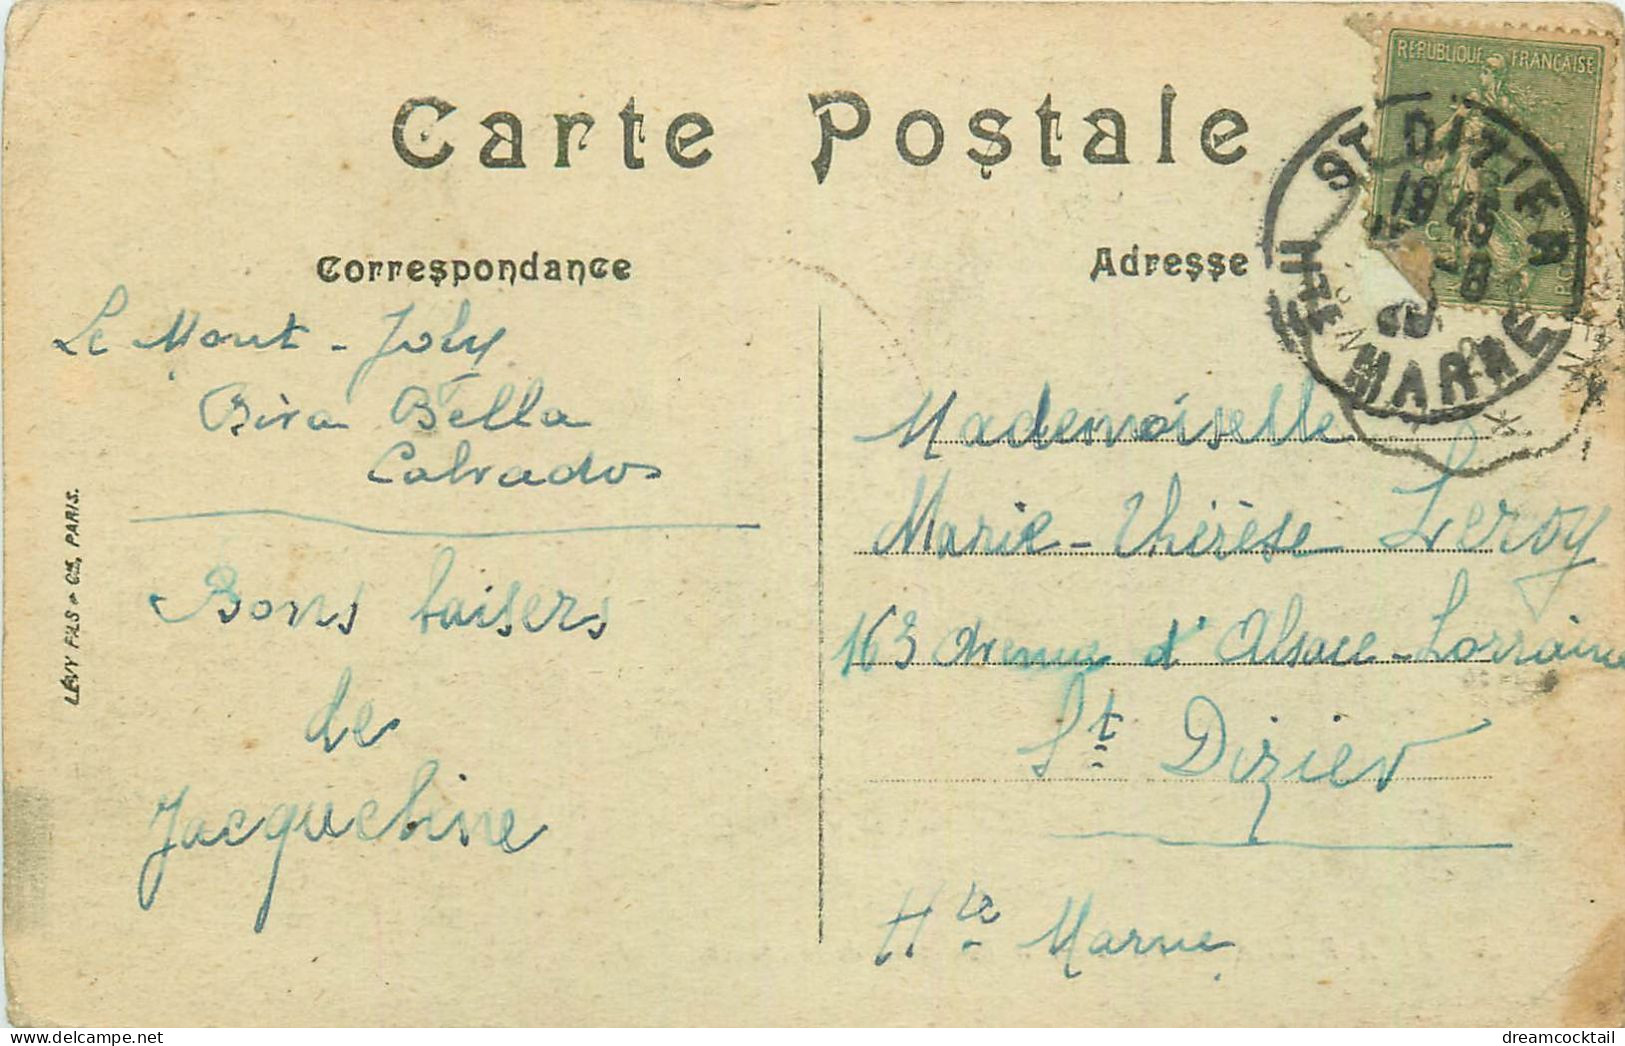 Carte Postale
Correspondance
Adresse
REPUBLIQUE FRANCAISE
ST DIZIER
18 45
-8
HTE MARNE
Le Mont-Joly
Bira Bella
Calvados
Bons baisers
de
Jacqueline
LÉVY FILS & Cie, PARIS.
Mademoiselle
Marie-Thérèse Leroy
163 Avenue d'Alsace-Lorraine
St Dizier
Hte Marne
dreamcocktail